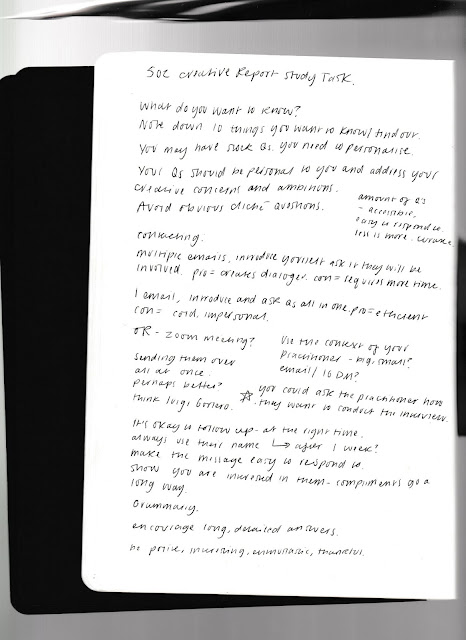 502 Creative Report Study Task.
What do you want to know?
Note down 10 things you want to know/find out.
You may have stock Qs. you need to personalise.
Your Qs should be personal to you and address your
creative concerns and ambitions.
Avoid obvious cliché questions.
amount of Q's
- accessible,
easy to respond to.
less is more.
contacting.
multiple emails, introduce yourself ask if they will be
involved. pro = creates dialogue. con = requires more time.
1 email, introduce and ask Qs all in one. pro = efficient
con = cold. impersonal.
OR - zoom meeting?
sending them over
all at once.
perhaps better?
think luigi
use the context of your
practitioner - big, small?
email / IG DM?
☆ you could ask the practitioner how
they want to conduct the interview.
It's okay to follow up - at the right time.
always use their name ↳ after 1 week?
make the message easy to respond to.
show you are interested in them - compliments go a
long way.
Grammarly.
encourage long, detailed answers.
be polite, interesting, enthusiastic, thankful.